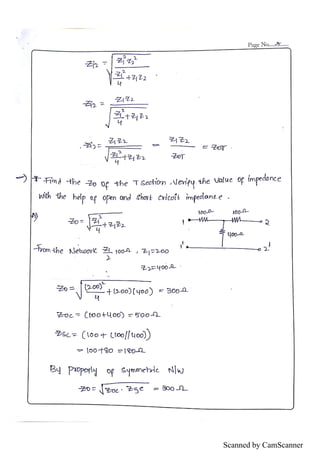 Page No...
Zi2 = √ Z1² Z2² / Z1²/4 + Z1Z2
Zi2 = Z1Z2 / √ Z1²/4 + Z1Z2
∴ Zi2 = Z1Z2 / √ Z1²/4 + Z1Z2 = Z1Z2 / ZOT = ZOπ
Find the Zo of the T section. Verify the value of impedance
with the help of open and short cricoit impedance.
100Ω 100Ω
Zo = √ Z1²/4 + Z1Z2
1 2
400Ω
From the Network Z1/2 = 100Ω, Z1=200
1' 2'
Z2=400Ω
Zo = √ (200)²/4 + (200)(400) = 300Ω
Zoc = (100+400) = 500Ω
Zsc = (100 + (100//400))
= 100+80 = 180Ω
By properly of symmetric N/w
Zo = √ Zoc . Zsc = 300Ω
Scanned by CamScanner